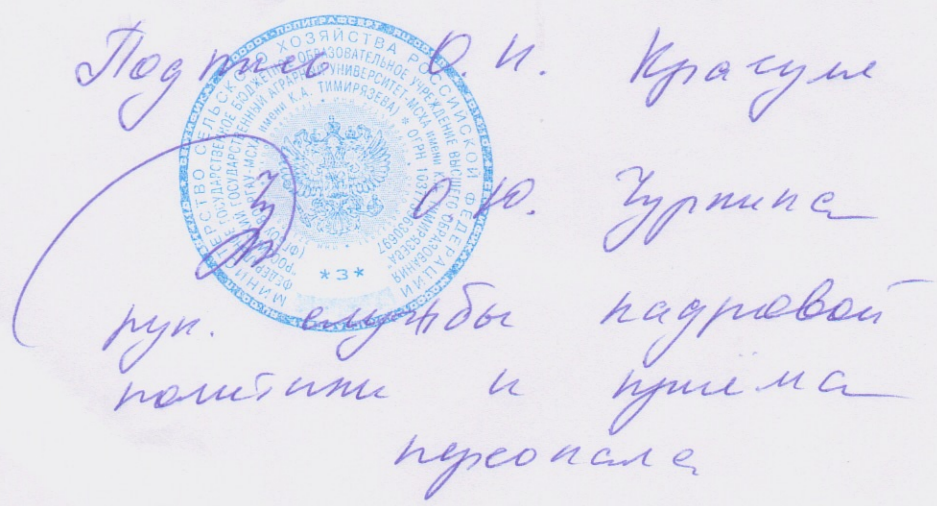 Подпись О. Н. Красуля
О.Ю. Чуркина
рук. службы кадровой
политики и приёма
персонала
МИНИСТЕРСТВО СЕЛЬСКОГО ХОЗЯЙСТВА РОССИЙСКОЙ ФЕДЕРАЦИИ
ФЕДЕРАЛЬНОЕ ГОСУДАРСТВЕННОЕ БЮДЖЕТНОЕ ОБРАЗОВАТЕЛЬНОЕ УЧРЕЖДЕНИЕ ВЫСШЕГО ОБРАЗОВАНИЯ
"РОССИЙСКИЙ ГОСУДАРСТВЕННЫЙ АГРАРНЫЙ УНИВЕРСИТЕТ-МСХА ИМЕНИ К.А. ТИМИРЯЗЕВА"
ИМЕНИ К.А. ТИМИРЯЗЕВА) * ОГРН
*3*